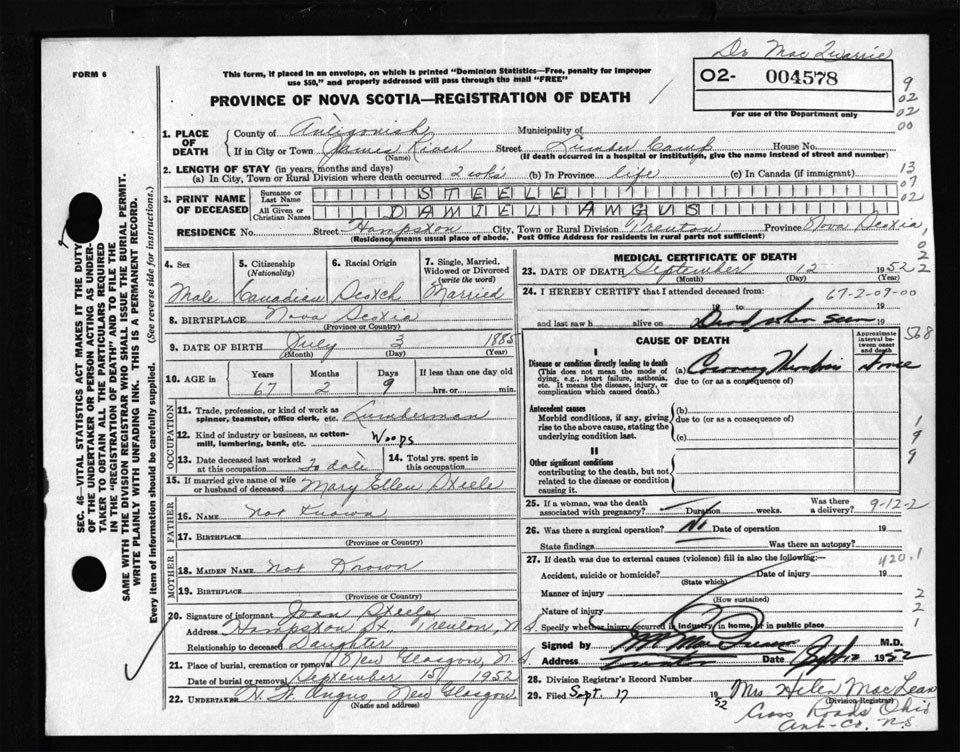 Dr Mac Quarrie
FORM 6
This form, if placed in an envelope, on which is printed "Dominion Statistics—Free, penalty for improper
use $50," and properly addressed will pass through the mail "FREE"
02- 004578
For use of the Department only
PROVINCE OF NOVA SCOTIA—REGISTRATION OF DEATH
9
02
02
00
1. PLACE OF DEATH
County of Antigonish Municipality of
If in City or Town James River (Name) Street Lumber Camp House No.
(If death occurred in a hospital or institution, give the name instead of street and number)
2. LENGTH OF STAY (in years, months and days)
(a) In City, Town or Rural Division where death occurred 2 wks (b) In Province life (c) In Canada (if immigrant)
13
07
02
3. PRINT NAME OF DECEASED
Surname or Last Name STEELE
All Given or Christian Names DANIEL ANGUS
RESIDENCE No. Street Hampston City, Town or Rural Division Trenton Province Nova Scotia
(Residence means usual place of abode. Post Office Address for residents in rural parts not sufficient)
4. Sex
Male
5. Citizenship
(Nationality)
Canadian
6. Racial Origin
Scotch
7. Single, Married,
Widowed or Divorced
(write the word)
Married
8. BIRTHPLACE Nova Scotia
(Province or Country)
9. DATE OF BIRTH July 3 1885
(Month) (Day) (Year)
10. AGE in Years Months Days If less than one day
67 2 9 hrs. or min.
OCCUPATION
11. Trade, profession, or kind of work as
spinner, teamster, office clerk, etc. Lumberman
12. Kind of industry or business, as cotton-
mill, lumbering, bank, etc. Woods
13. Date deceased last worked
at this occupation To date
14. Total yrs. spent in
this occupation
15. If married give name of wife
or husband of deceased Mary Ellen Steele
FATHER
16. NAME not Known
17. BIRTHPLACE
(Province or Country)
MOTHER
18. MAIDEN NAME not Known
19. BIRTHPLACE
(Province or Country)
20. Signature of informant Joan Steele
Address Hampston St. Trenton, N.S.
Relationship to deceased Daughter
21. Place of burial, cremation or removal New Glasgow, N.S.
Date of burial or removal September 15, 1952
22. UNDERTAKER H. W. Angus New Glasgow
(Name and address)
MEDICAL CERTIFICATE OF DEATH
23. DATE OF DEATH September 12 1952
(Month) (Day) (Year)
24. I HEREBY CERTIFY that I attended deceased from:
67-2-09-00
19 to 19
and last saw h alive on Dead when seen 19
CAUSE OF DEATH
Approximate
interval between onset
and death
568
I
Disease or condition directly leading to death
(This does not mean the mode of
dying, e.g., heart failure, asthenia,
etc. It means the disease, injury, or
complication which caused death.)
(a) Coronary Thrombosis
due to (or as a consequence of)
Antecedent causes
Morbid conditions, if any, giving
rise to the above cause, stating the
underlying condition last.
(b)
due to (or as a consequence of)
(c)
1
9
9
II
Other significant conditions
contributing to the death, but not
related to the disease or condition
causing it.
25. If a woman, was the death
associated with pregnancy? Duration weeks. Was there
a delivery? 9-12-2
26. Was there a surgical operation? No Date of operation 19
State findings Was there an autopsy?
27. If death was due to external causes (violence) fill in also the following:—
420.1
Accident, suicide or homicide? Date of injury 19
(State which)
Manner of injury
(How sustained)
Nature of injury
2
2
1
Specify whether injury occurred in industry, in home, or in public place
Signed by M.D.
Address Date Sept 12 1952
28. Division Registrar's Record Number
29. Filed Sept. 17 1952 Mrs. Helen MacLean
(Division Registrar)
Cross Roads Ohio
Ant. Co. N.S.
SEC. 46—VITAL STATISTICS ACT MAKES IT THE DUTY
OF THE UNDERTAKER OR PERSON ACTING AS UNDER-
TAKER TO OBTAIN ALL THE PARTICULARS REQUIRED
IN THE "REGISTRATION OF DEATH" AND TO FILE THE
SAME WITH THE DIVISION REGISTRAR WHO SHALL ISSUE THE BURIAL PERMIT.
WRITE PLAINLY WITH UNFADING INK. THIS IS A PERMANENT RECORD.
Every item of information should be carefully supplied. (See reverse side for instructions.)